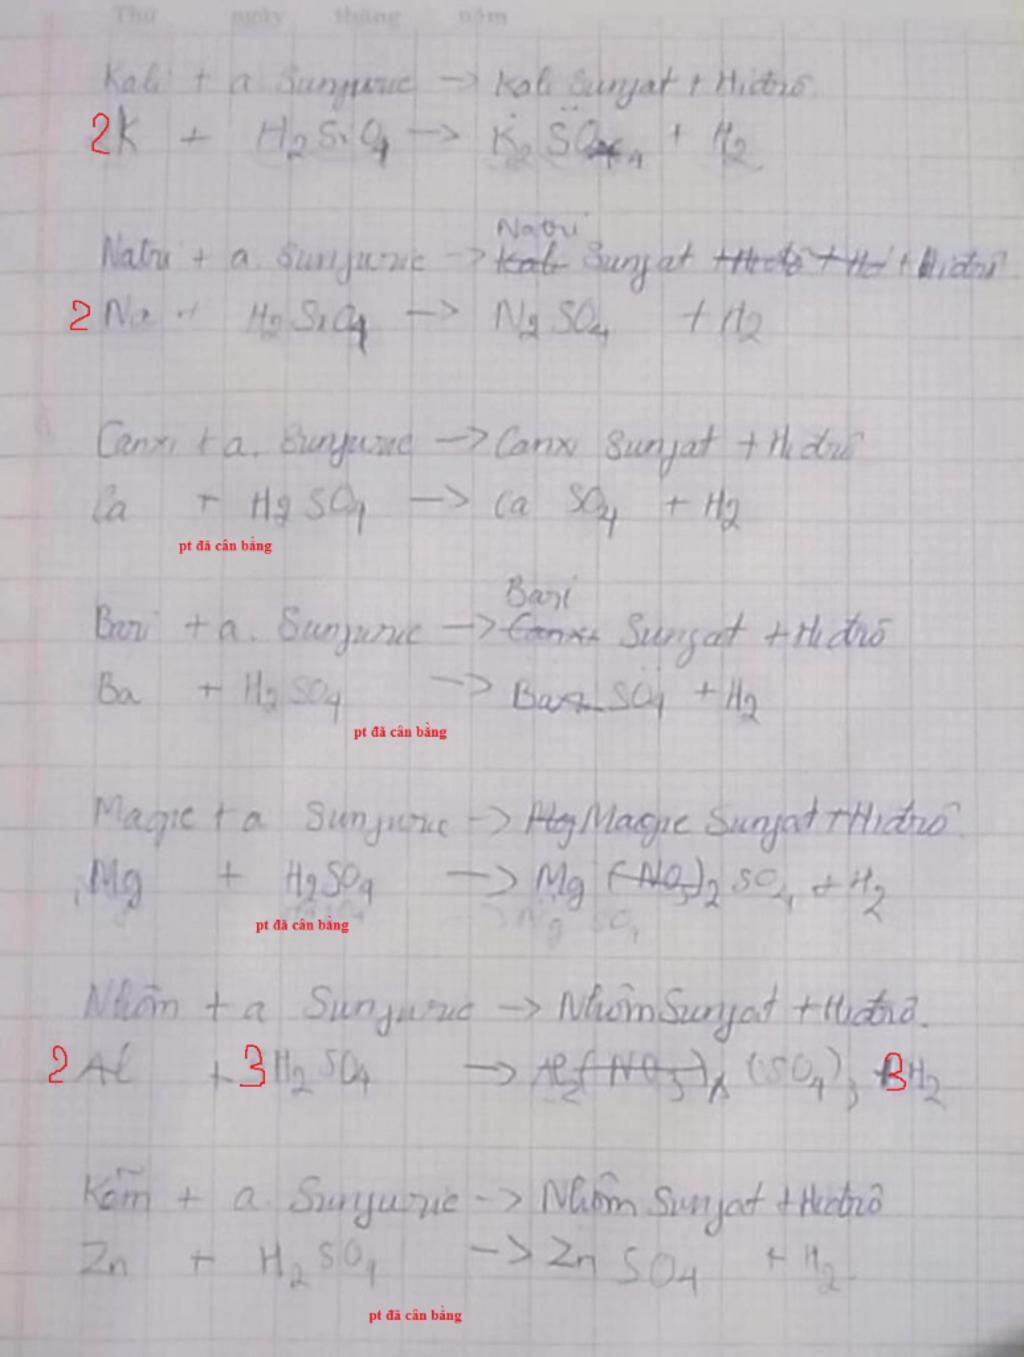 Thứ ngày tháng năm
Kali + a Sunfuric → Kali Sunfat + Hiđrô
2K + H2SiO4 → K2 SO4 + H2
Natri
Natri + a. Sunfuric → Kali Sunfat + Hiđrô + Hi + Hiđrô
2 Na + H2SiO4 → N2 SO4 + H2
Canxi + a. Sunfuric → Canxi Sunfat + Hiđrô
Ca + H2SO4 → Ca SO4 + H2
pt đã cân bằng
Bari
Bari + a. Sunfuric → Canxi Sunfat + Hiđrô
Ba + H2SO4 → Ba SO4 + H2
pt đã cân bằng
Magie + a Sunfuric → Mg Magie Sunfat + Hiđrô
Mg + H2SO4 → Mg (NO3)2 SO4 + H2
Mg SO4
pt đã cân bằng
Nhôm + a Sunfuric → Nhôm Sunfat + Hiđrô.
2 Al + 3 H2SO4 → Al2(NO3) (SO4)3 + 3H2
Kẽm + a. Sunfuric → Nhôm Sunfat + Hiđrô
Zn + H2SO4 → Zn SO4 + H2
pt đã cân bằng